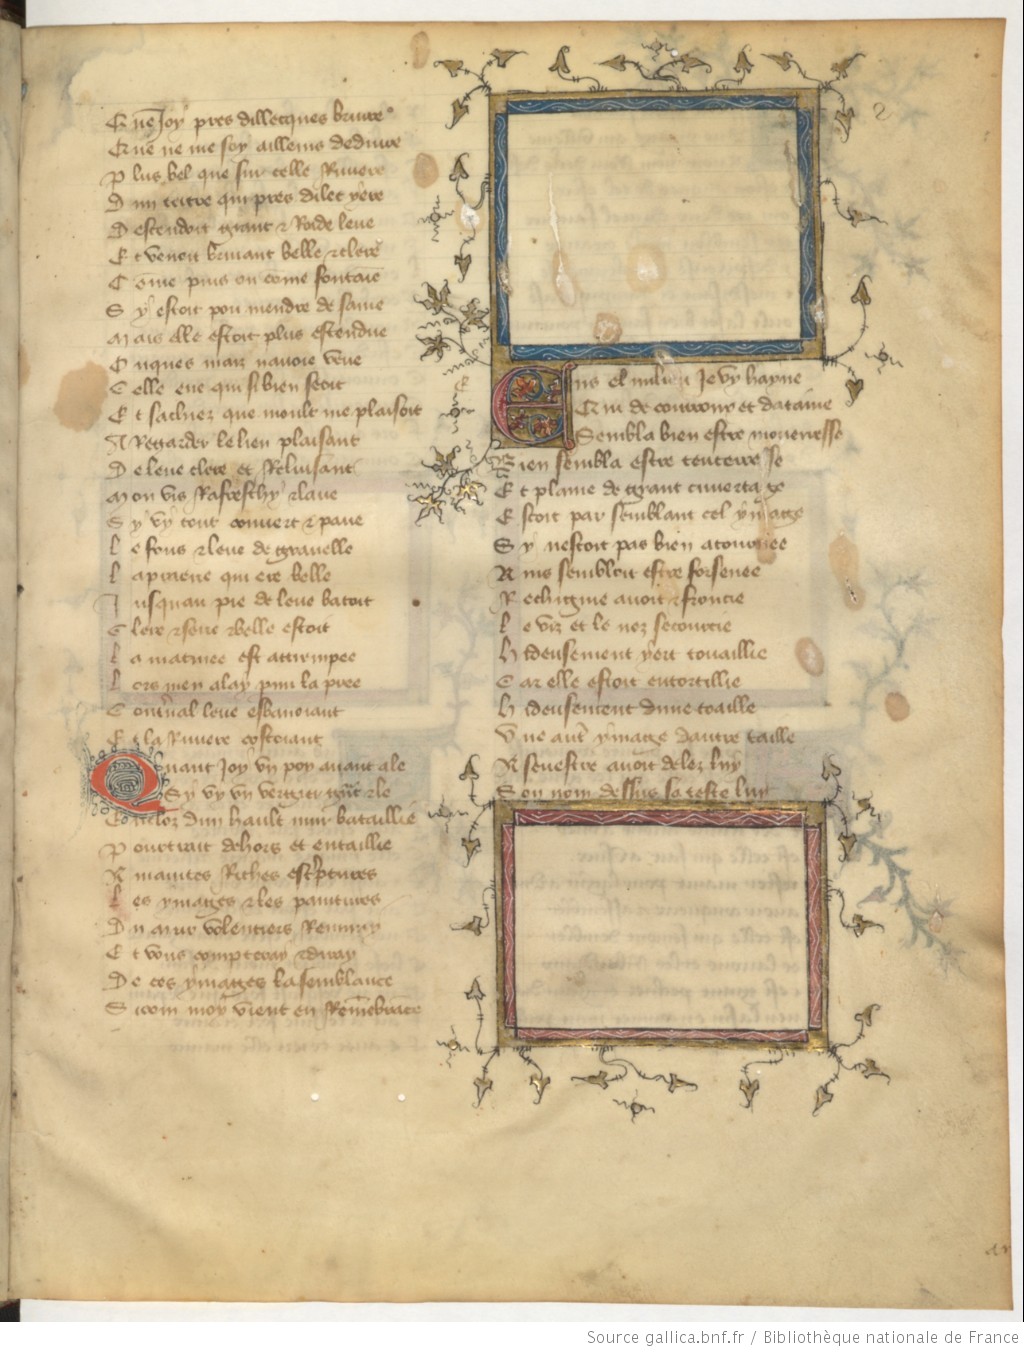 Que Joy pres dillecques bruire
Que ne me soy ailleurs deduire
Plus bel que sur celle Riviere
Dun tertre qui pres dilec yere
Descendoit grant & Roide leue
Et venoit bruiant belle & clere
Come puis ou come fontaie
Sy estoit pou mendre de saine
Mais elle estoit plus estendue
Onques maiz navoie veue
Celle eue qui si bien seoit
Et sachiez que moult me plaisoit
A Regarder le lieu plaisant
De leue clere et Reluisant
Mon vis Rafreschy & lave
Sy vy tout couvert & pave
Le fons & leue de gravelle
La praerie qui ere belle
Jusquau pie de leue batoit
Clere & serie & belle estoit
La matinee est attrempee
Lors men alay pmi la pree
Contval leue esbanoiant
Et la Riviere costoiant
Quant Joy un poy avant ale
Sy vy un vergier grāt & le
Enclos dun hault mur bataillie
Pourtrait dehors et entaillie
A maintes Riches escptures
Les ymages & les paintures
Du mur volentiers Remiray
Et vous compteray & diray
De ces ymages la semblance
Sicom moy vient en Remēbrāce
2
Ens el milieu Je vy hayne
Qui de courroux et dataine
Sembla bien estre moveresse
Bien sembla estre tencerresse
Et plaine de grant cuvertage
Estoit par semblant cel ymage
Sy nestoit pas bien atournee
Ains sembloit estre forsenee
Rechignie avoit & froncie
Le viz et le nez secourcie
Hideusement yert touaillie
Car elle estoit entortillie
Hideusement dune toaille
Une autr ymage dautre taille
A senestre avoit delez luy
Son nom dessus sa teste luy
Source gallica.bnf.fr / Bibliothèque nationale de France